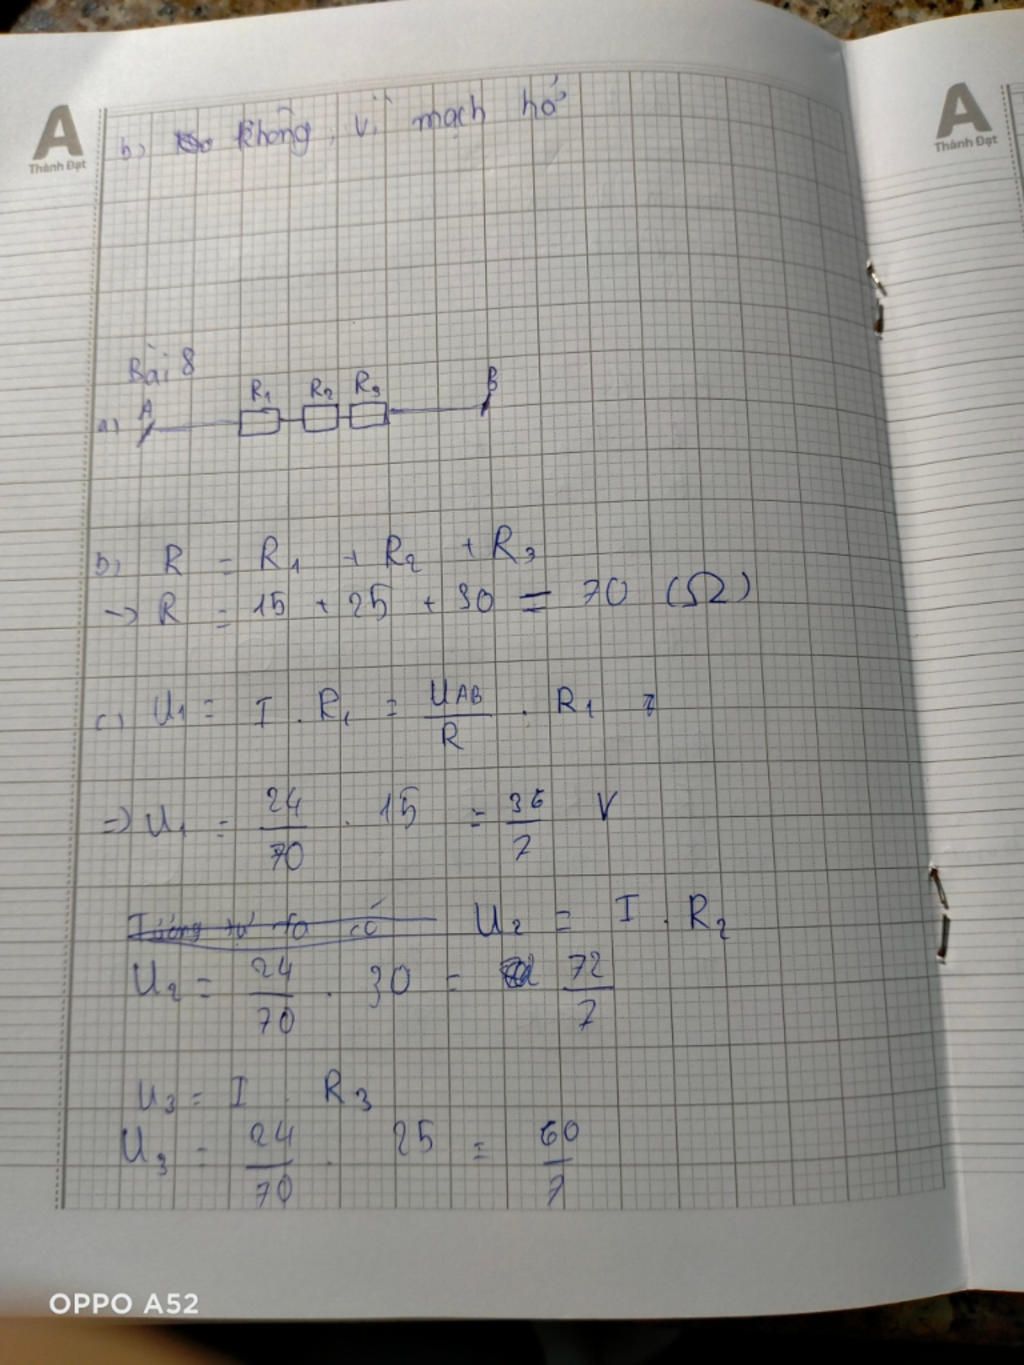 A
Thành Đạt
A
Thành Đạt
b) không, vì mạch hở
Bài 8
a) A R1 R2 R3 B
b) R = R1 + R2 + R3
→ R = 15 + 25 + 30 = 70 (Ω)
c) U1 = I . R1 = UAB/R . R1
=> U1 = 24/70 . 15 = 36/7 V
Tương tự ta có U2 = I . R2
U2 = 24/70 . 30 = 72/7
U3 = I . R3
U3 = 24/70 . 25 = 60/7
OPPO A52